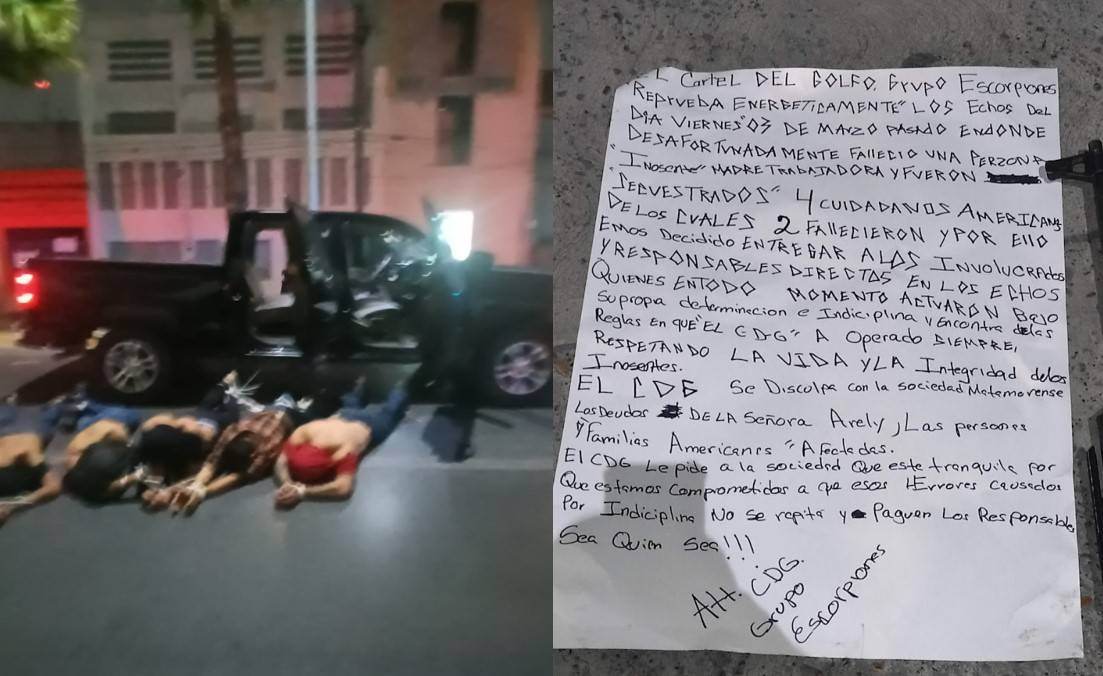 EL Cartel DEL GOLFO. Grupo Escorpiones
REPRUEBA ENERGETICAMENTE" LOS Echos DEL
DIA VIERNES "03 DE MARZO PASADO ENDONDE
DESAFORTUNADAMENTE FALLECIO UNA PERZONA
"Inosente" MADRE TRABAJADORA Y FUERON
SECUESTRADOS" 4 CUIDADANOS AMERICANS
DE LOS CUALES 2 FALLECIERON Y POR ELLO
EMOS DECIDIDO ENTREGAR A LOS INVOLUCRADOS
Y RESPONSABLES DIRECTOS EN LOS ECHOS
QUIENES EN TODO MOMENTO ACTUARON BAJO
su propia determinacion e Indiciplina y Encontra delas
Reglas EN QUE "EL CDG" A Operado SIEMPRE,
RESPETANDO LA VIDA Y LA Integridad delos
Inosentes.
EL CDG Se Disculpa con la sociedad Matamorense
Los Deudos DE LA Señora Arely, Las personas
y Familias Americanas "Afectadas.
El CDG Le pide a la sociedad Que este tranquila por
Que estamos comprometidos a que esos "Errores causados
Por Indiciplina No se repita y Paguen Los Responsables
Sea Quien Sea!!!
Att. CDG.
Grupo
Escorpiones